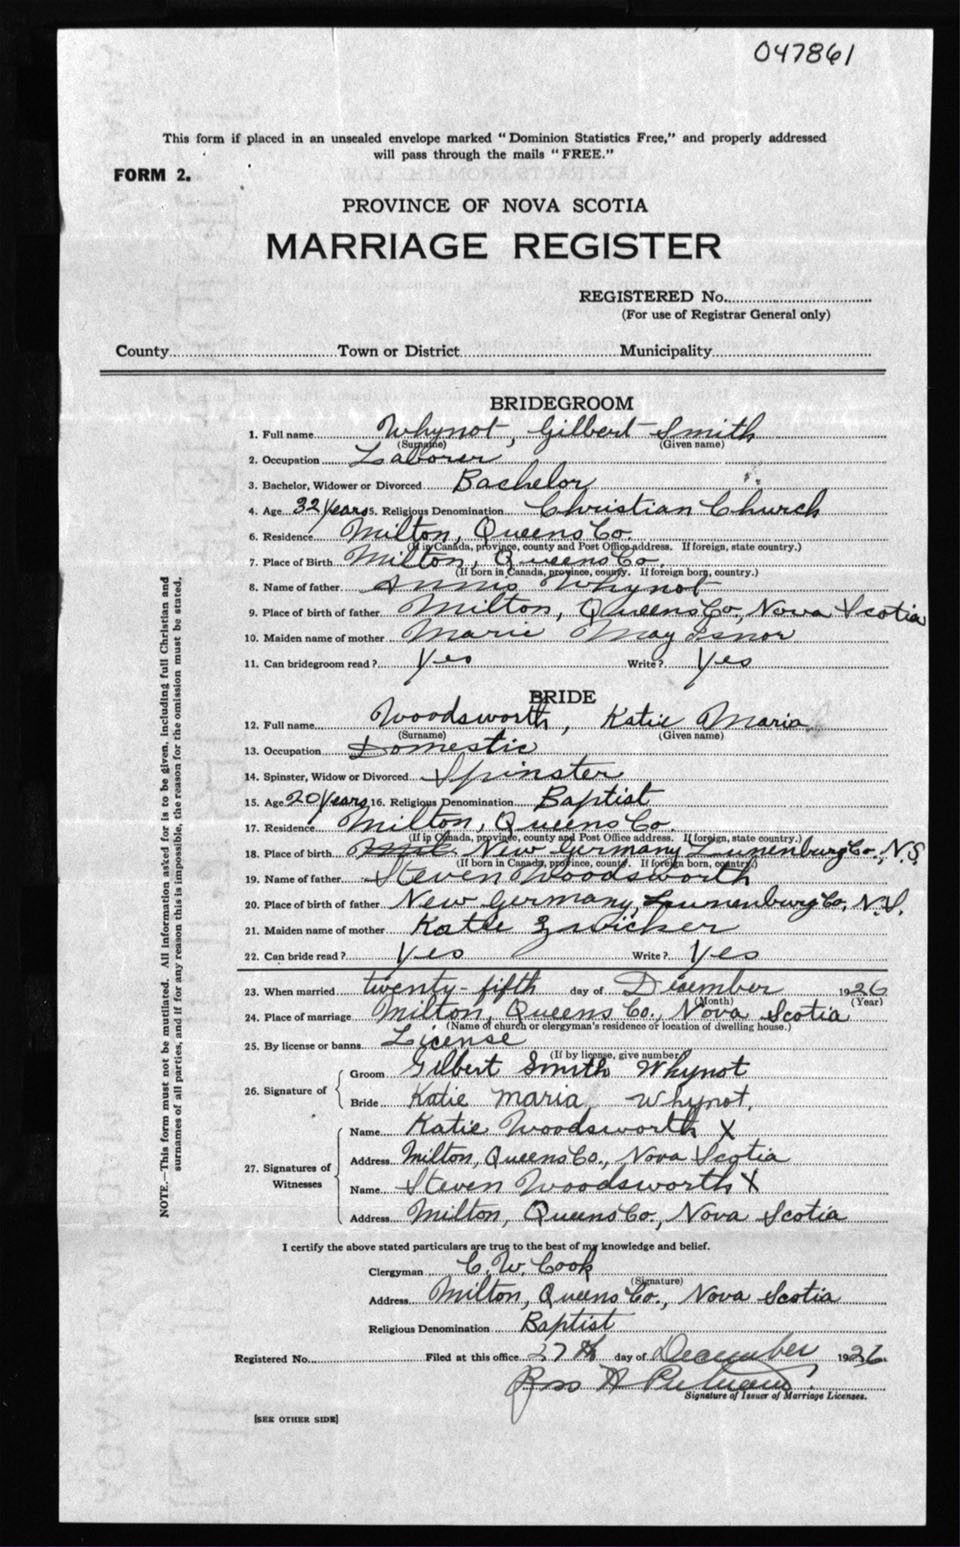 047861
This form if placed in an unsealed envelope marked "Dominion Statistics Free," and properly addressed
will pass through the mails "FREE."
FORM 2.
PROVINCE OF NOVA SCOTIA
MARRIAGE REGISTER
REGISTERED No.
(For use of Registrar General only)
County Town or District Municipality
BRIDEGROOM
1. Full name Whynot, Gilbert Smith
(Surname) (Given name)
2. Occupation Laborer
3. Bachelor, Widower or Divorced Bachelor
4. Age 32 Years 5. Religious Denomination Christian Church
6. Residence Milton, Queens Co.
(If in Canada, province, county and Post Office address. If foreign, state country.)
7. Place of Birth Milton, Queens Co.
(If born in Canada, province, county. If foreign born, country.)
8. Name of father Whynot
9. Place of birth of father Milton, Queens Co., Nova Scotia
10. Maiden name of mother Marie May Isnor
11. Can bridegroom read? Yes Write? Yes
BRIDE
12. Full name Woodsworth, Katie Maria
(Surname) (Given name)
13. Occupation Domestic
14. Spinster, Widow or Divorced Spinster
15. Age 20 Years 16. Religious Denomination Baptist
17. Residence Milton, Queens Co.
(If in Canada, province, county and Post Office address. If foreign, state country.)
18. Place of birth Mil New Germany Lunenburg Co., N.S.
(If born in Canada, province, county. If foreign born, country.)
19. Name of father Steven Woodsworth
20. Place of birth of father New Germany, Lunenburg Co, N.S.
21. Maiden name of mother Katie Zwicker
22. Can bride read? Yes Write? Yes
23. When married twenty-fifth day of December 1926
(Month) (Year)
24. Place of marriage Milton, Queens Co., Nova Scotia
(Name of church or clergyman's residence or location of dwelling house.)
25. By license or banns License
(If by license, give number)
26. Signature of
Groom Gilbert Smith Whynot
Bride Katie Maria Whynot.
27. Signatures of Witnesses
Name Katie Woodsworth X
Address Milton, Queens Co., Nova Scotia
Name Steven Woodsworth X
Address Milton, Queens Co., Nova Scotia
I certify the above stated particulars are true to the best of my knowledge and belief.
Clergyman C. W. Cook
(Signature)
Address Milton, Queens Co., Nova Scotia
Religious Denomination Baptist
Registered No. Filed at this office 27th day of December 1926
Signature of Issuer of Marriage Licenses.
[SEE OTHER SIDE]
NOTE.—This form must not be mutilated. All information asked for is to be given, including full Christian and
surnames of all parties, and if for any reason this is impossible, the reason for the omission must be stated.